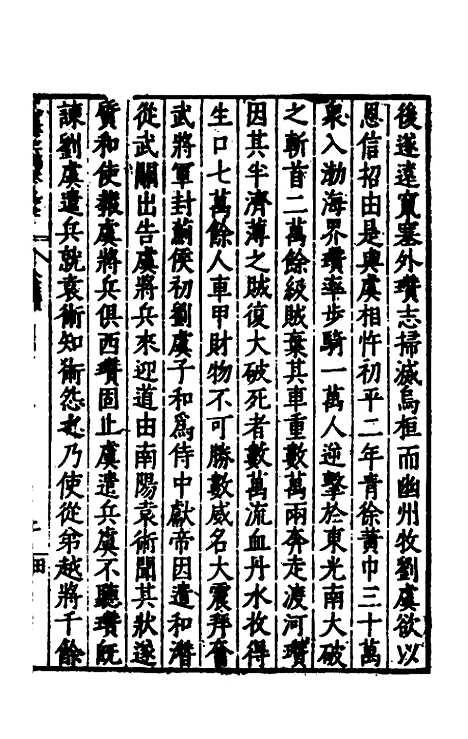 後遂遠竄塞外瓚志掃滅烏桓而幽州牧劉虞欲以
恩信招由是與虞相忤初平二年青徐黃巾三十萬
衆入渤海界瓚率步騎一萬人逆擊於東光南大破
之斬首二萬餘級賊棄其車重數萬兩奔走渡河瓚
因其半濟薄之賊復大破死者數萬流血丹水收得
生口七萬餘人車甲財物不可勝數威名大震拜奮
武將軍封薊侯初劉虞子和爲侍中獻帝因遣和潛
從武關出告虞將兵來迎道由南陽袁術聞其狀遂
質和使報虞將兵俱西瓚固止虞遣兵虞不聽瓚旣
諫劉虞遣兵就袁術知術怨之乃使從弟越將千餘